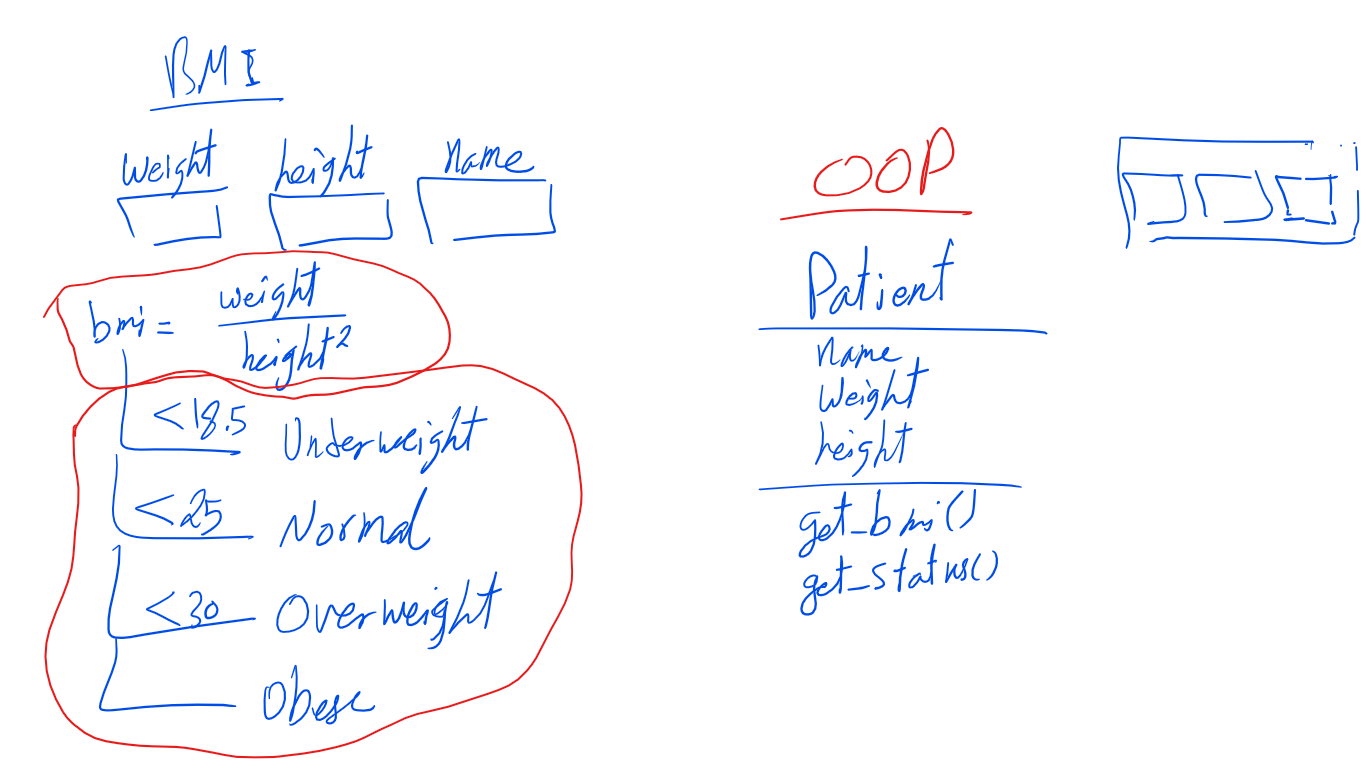 BMI
weight height name
bmi = weight
height²
<18.5 Underweight
<25 Normal
<30 Overweight
Obese
OOP
Patient
name
weight
height
get_bmi()
get_status()